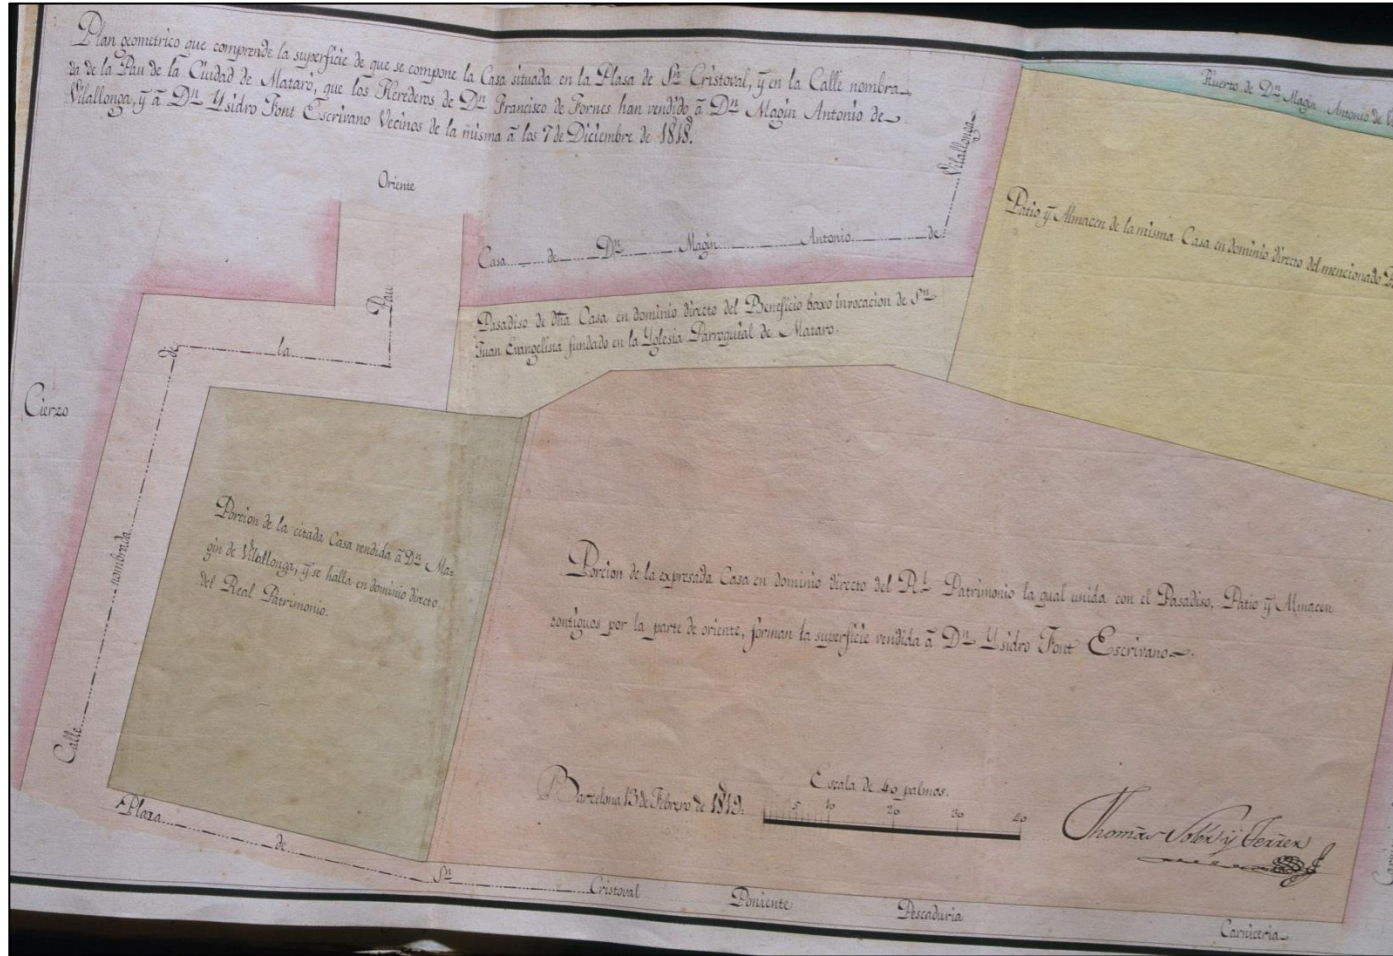 Plan geometrico que comprende la superficie de que se compone la Casa situada en la Plasa de Sn Cristoval, ÿ en la Calle nombra-
da de la Pau de la Ciudad de Mataró, que los Herederos de Dn Francisco de Fornes han vendido â Dn Magin Antonio de
Vilallonga, ÿ â Dn Ysidro Font Escrivano Vecinos de la misma â los 7 de Diciembre de 1818.
Huerto de Dn Magin Antonio de
Oriente
Casa de Dn Magin Antonio de Vilallonga
Patio ÿ Almacen de la misma Casa en dominio directo del mencionado
Pasadiso de dha Casa en dominio directo del Beneficio baxo invocacion de Sn
Juan Evangelista fundado en la Yglesia Parroquial de Mataro.
Cierzo
Calle nombrada de la Pau
Porcion de la citada Casa vendida â Dn Ma-
gin de Vilallonga, ÿ se halla en dominio directo
del Real Patrimonio.
Porcion de la expresada Casa en dominio directo del Rl Patrimonio la qual unida con el Pasadiso, Patio ÿ Almacen
contiguos por la parte de oriente, forman la superficie vendida â Dn Ysidro Font Escrivano
Barcelona 13 de Febrero de 1819.
Escala de 40 palmos.
5 10 20 30 40
Thomas Soler ÿ Ferrer
Plaza de Sn Cristoval
Poniente
Pescaduria
Carniceria